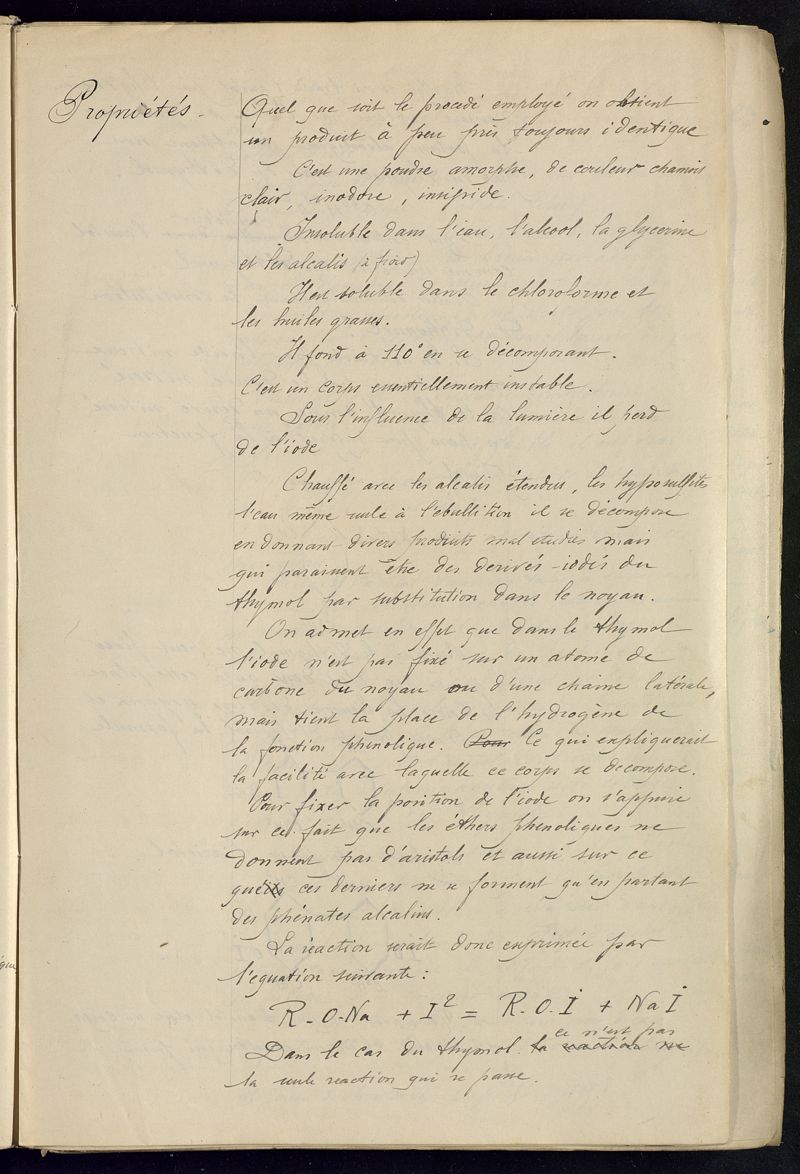 Propriétés.
Quel que soit le procédé employé on obtient
un produit à peu près toujours identique
C'est une poudre amorphe, de couleur chamois
clair, inodore, insipide.
Insoluble dans l'eau, l'alcool, la glycerine
et les alcalis (à froid)
Il est soluble dans le chloroforme et
les huiles grasses.
Il fond à 110° en se décomposant.
C'est un corps essentiellement instable.
Sous l'influence de la lumière il perd
de l'iode
Chauffé avec les alcalis étendus, les hyposulfites
l'eau même seule à l'ebullition il se décompose
en donnant divers produits mal etudiés mais
qui paraissent être des derivés iodés du
thymol par substitution dans le noyau.
On admet en effet que dans le thymol
l'iode n'est pas fixé sur un atome de
carbone du noyau ou d'une chaine latérale,
mais tient la place de l'hydrogène de
la fonction phénolique. Pour Ce qui expliquerait
la facilité avec laquelle ce corps se decompose.
Pour fixer la position de l'iode on s'appuie
sur ce fait que les éthers phenoliques ne
donnent pas d'aristols et aussi sur ce
que ces derniers ne se forment qu'en partant
des phénates alcalins.
La réaction serait donc exprimée par
l'equation suivante :
R-O-Na + I² = R.O.I + Na I
ce n'est pas
Dans le cas du thymol la reaction ne
la seule reaction qui se passe.